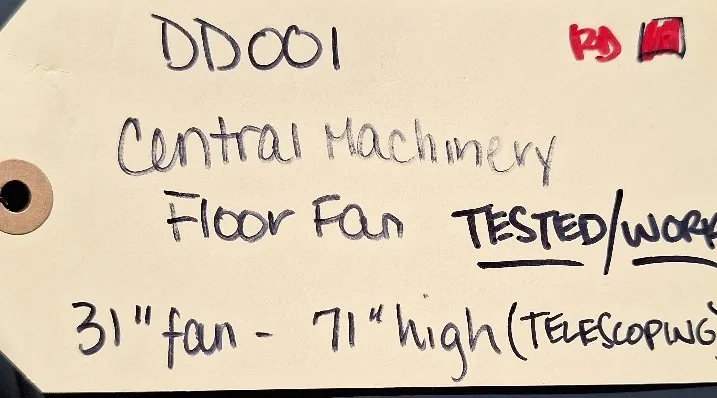 DD001 RD
Central Machinery
Floor Fan TESTED/WORK
31" fan - 71" high (TELESCOPING)